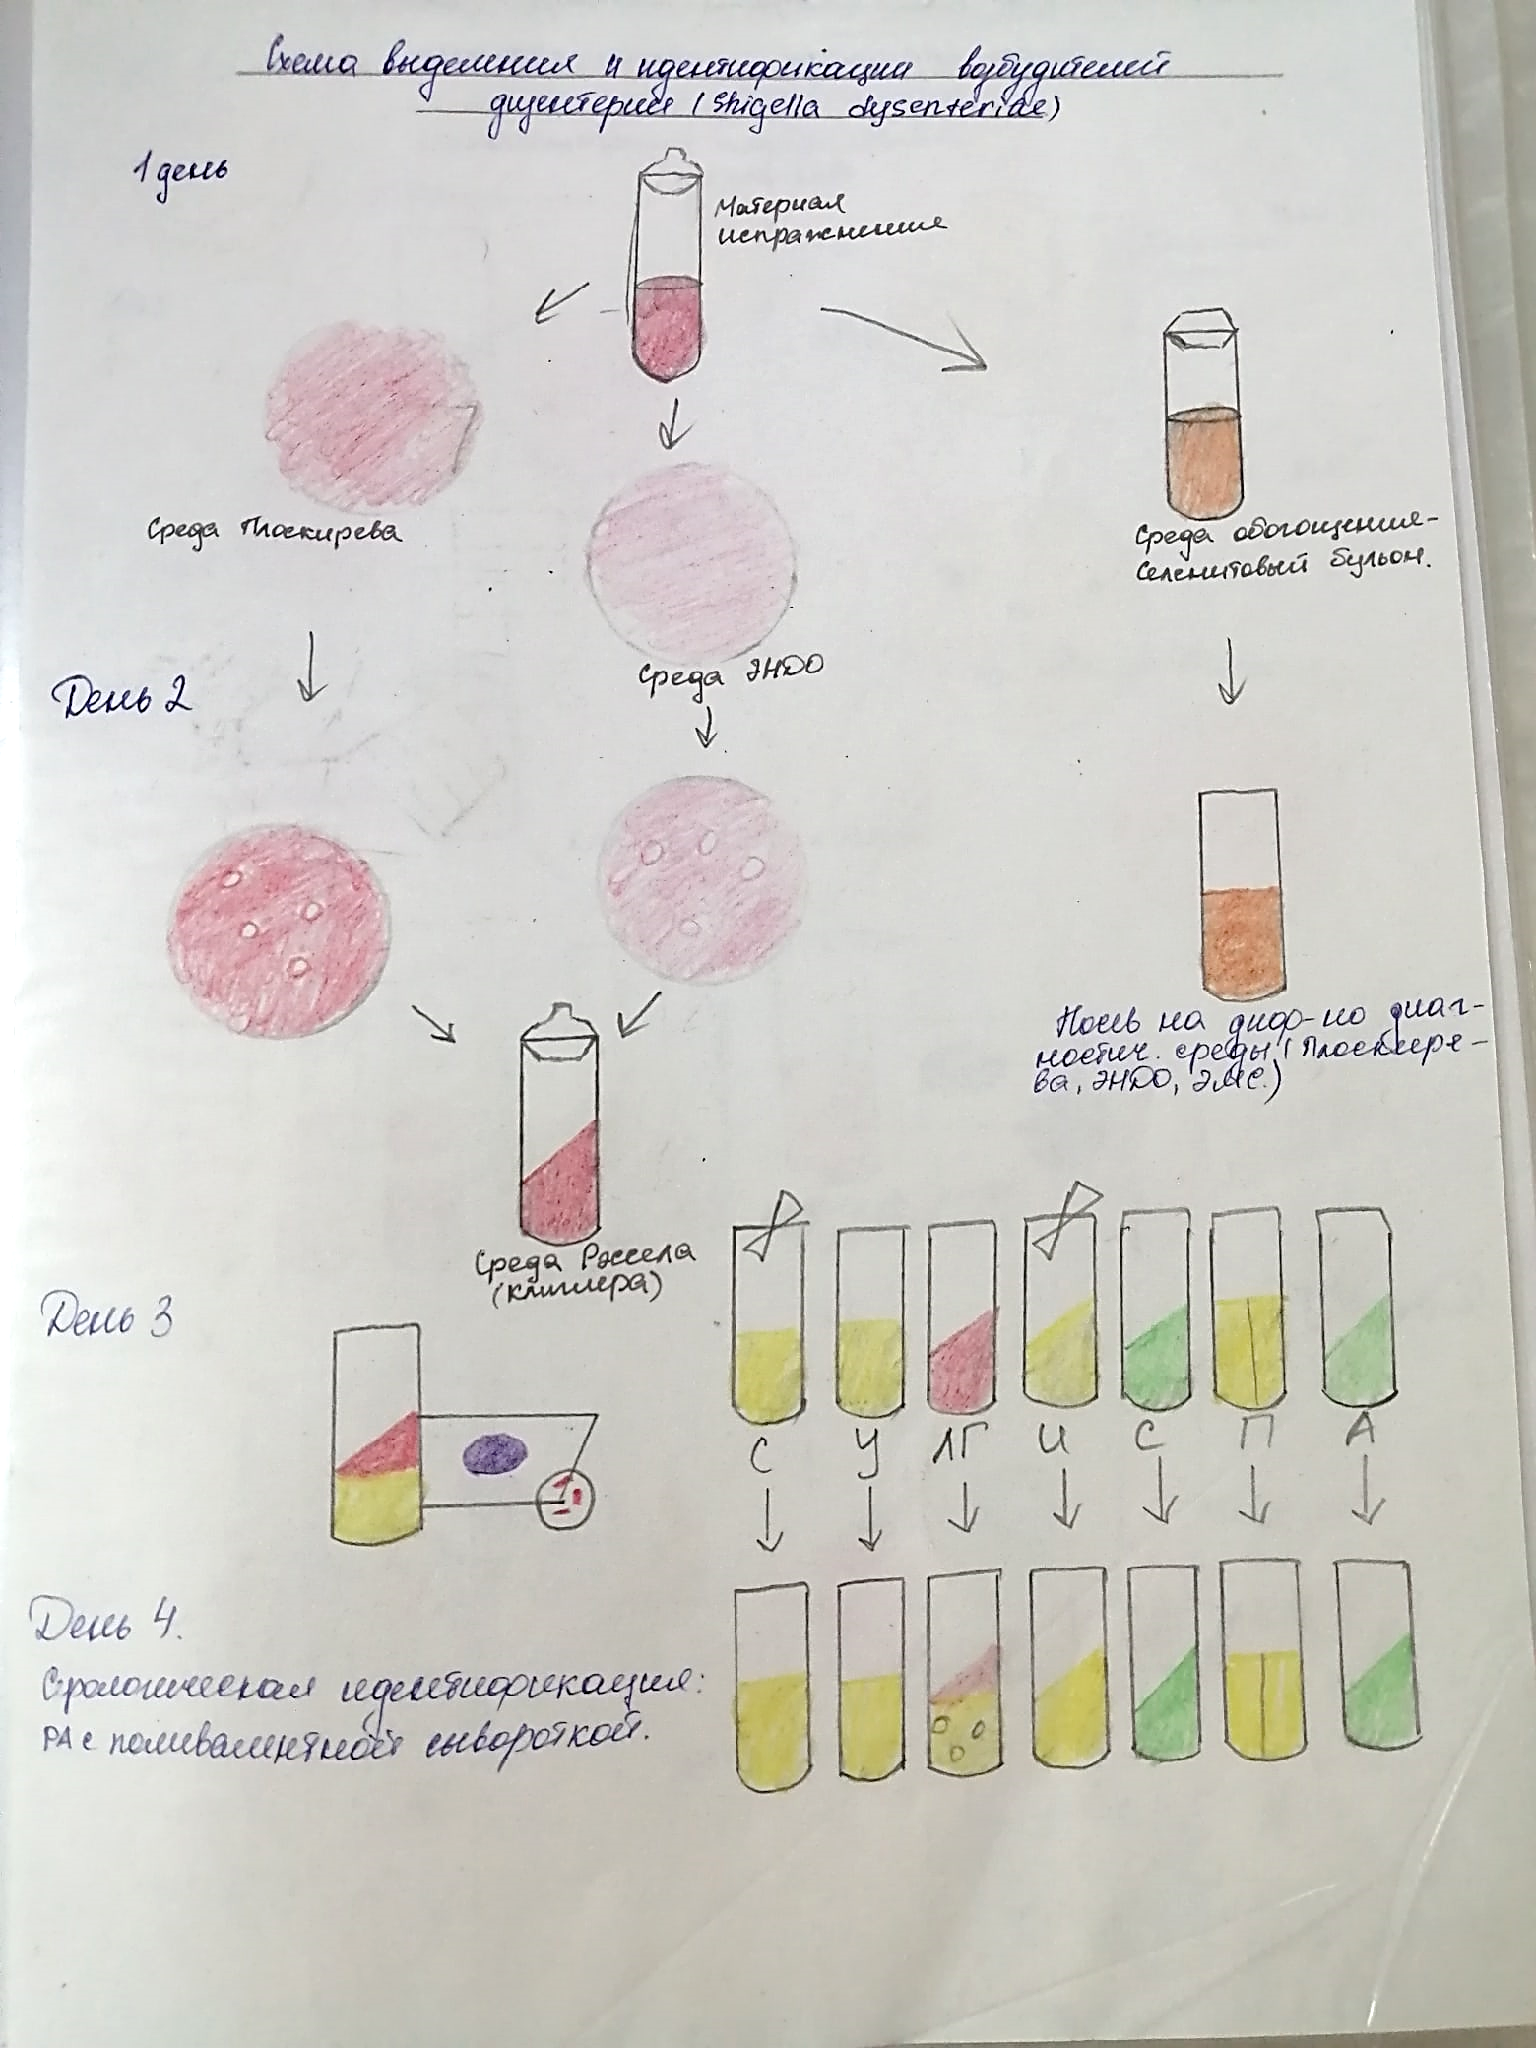 Схема выделения и идентификации возбудителей
дизентерии (Shigella dysenteriae)
1 день
Материал
испражнения
Среда Плоскирева
Среда ЭНДО
Среда обогощения-
селенитовый бульон.
День 2
Посев на диф-но диаг-
ностич. среды (Плоскире-
ва, ЭНДО, ЭМС.)
Среда Рассела
(Клиглера)
День 3
С У ЛГ И С П А
День 4.
Серологическая идентификация:
РА с поливалентной сывороткой.